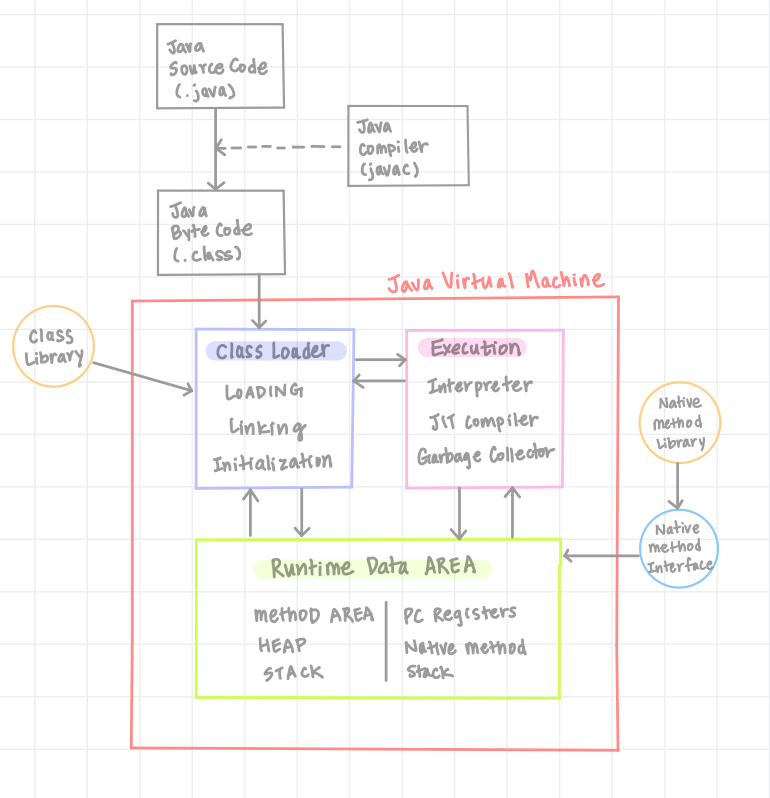 Java
Source Code
(.java)
Java
Compiler
(javac)
Java
Byte Code
(.class)
Java Virtual Machine
Class
Library
Class Loader
LOADING
Linking
Initialization
Execution
Interpreter
JIT Compiler
Garbage Collector
Native
method
Library
Native
method
Interface
Runtime Data AREA
methoD AREA
HEAP
STACK
PC Registers
Native method
Stack